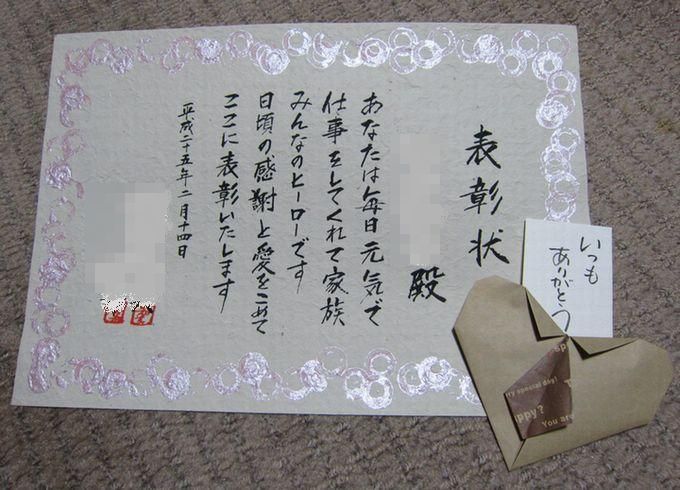 表彰状
殿
あなたは毎日元気で
仕事をしてくれて家族
みんなのヒーローです
日頃の感謝と愛をこめて
ここに表彰いたします
平成二十五年二月十四日
いつも
ありがとう
ry special day!
ppy?
You are